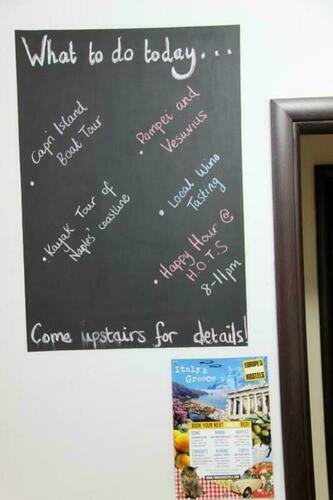 What to do today...
Capri Island
Boat Tour
Pompei and
Vesuvius
Kayak Tour of
Naples' coastline
Local Wine
Tasting
Happy Hour @
H.O.T.S
8-11pm
Come upstairs for details!
Italy &
Greece
EUROPE'S
HOSTELS
BOOK YOUR NEXT BED!